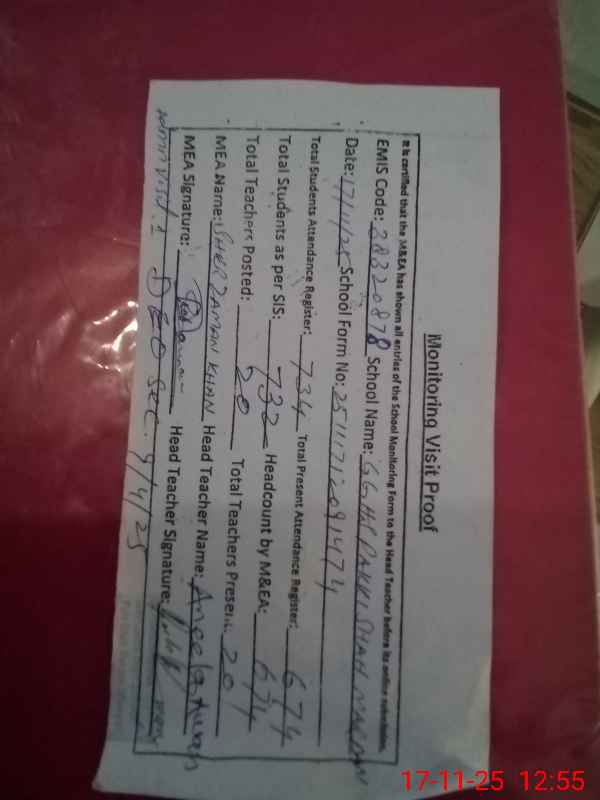 Monitoring Visit Proof
It is certified that the M&EA has shown all entries of the School Monitoring Form to the Head Teacher before its online submission.
EMIS Code: 38320878 School Name: GGHS PAKKI SHAH MARDAN
Date: 17/11/25 School Form No: 25111712091474
Total Students Attendance Register: 734 Total Present Attendance Register: 674
Total Students as per SIS: 732 Headcount by M&EA: 674
Total Teachers Posted: 20 Total Teachers Present: 20
MEA Name: SHER ZAMAN KHAN Head Teacher Name: Aneela
MEA Signature: Head Teacher Signature:
Admin Visit: 1 DEO Sec. 9/4/25
17-11-25 12:55